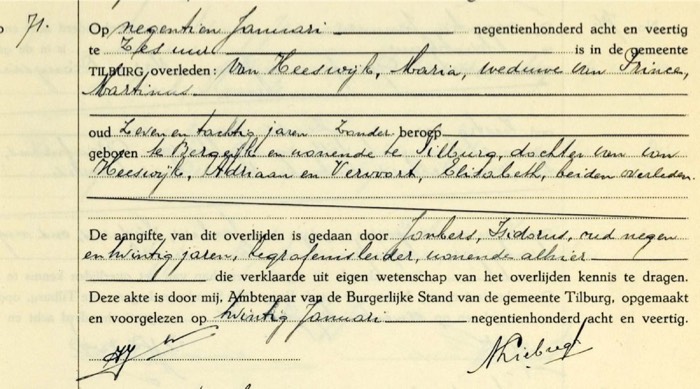 71.
Op negentien Januari negentienhonderd acht en veertig
te Zes uur is in de gemeente
TILBURG overleden: Van Heeswijk, Maria, weduwe van Prince,
Martinus.
oud Zeven en tachtig jaren Zonder beroep
geboren te Bergeijk en wonende te Tilburg, dochter van van
Heeswijk, Adriaan en Vervoort, Elisabeth, beiden overleden.
De aangifte van dit overlijden is gedaan door Jonkers, Isidorus, oud negen
en twintig jaren, begrafenisleider, wonende alhier
die verklaarde uit eigen wetenschap van het overlijden kennis te dragen.
Deze akte is door mij, Ambtenaar van de Burgerlijke Stand van de gemeente Tilburg, opgemaakt
en voorgelezen op twintig Januari negentienhonderd acht en veertig.